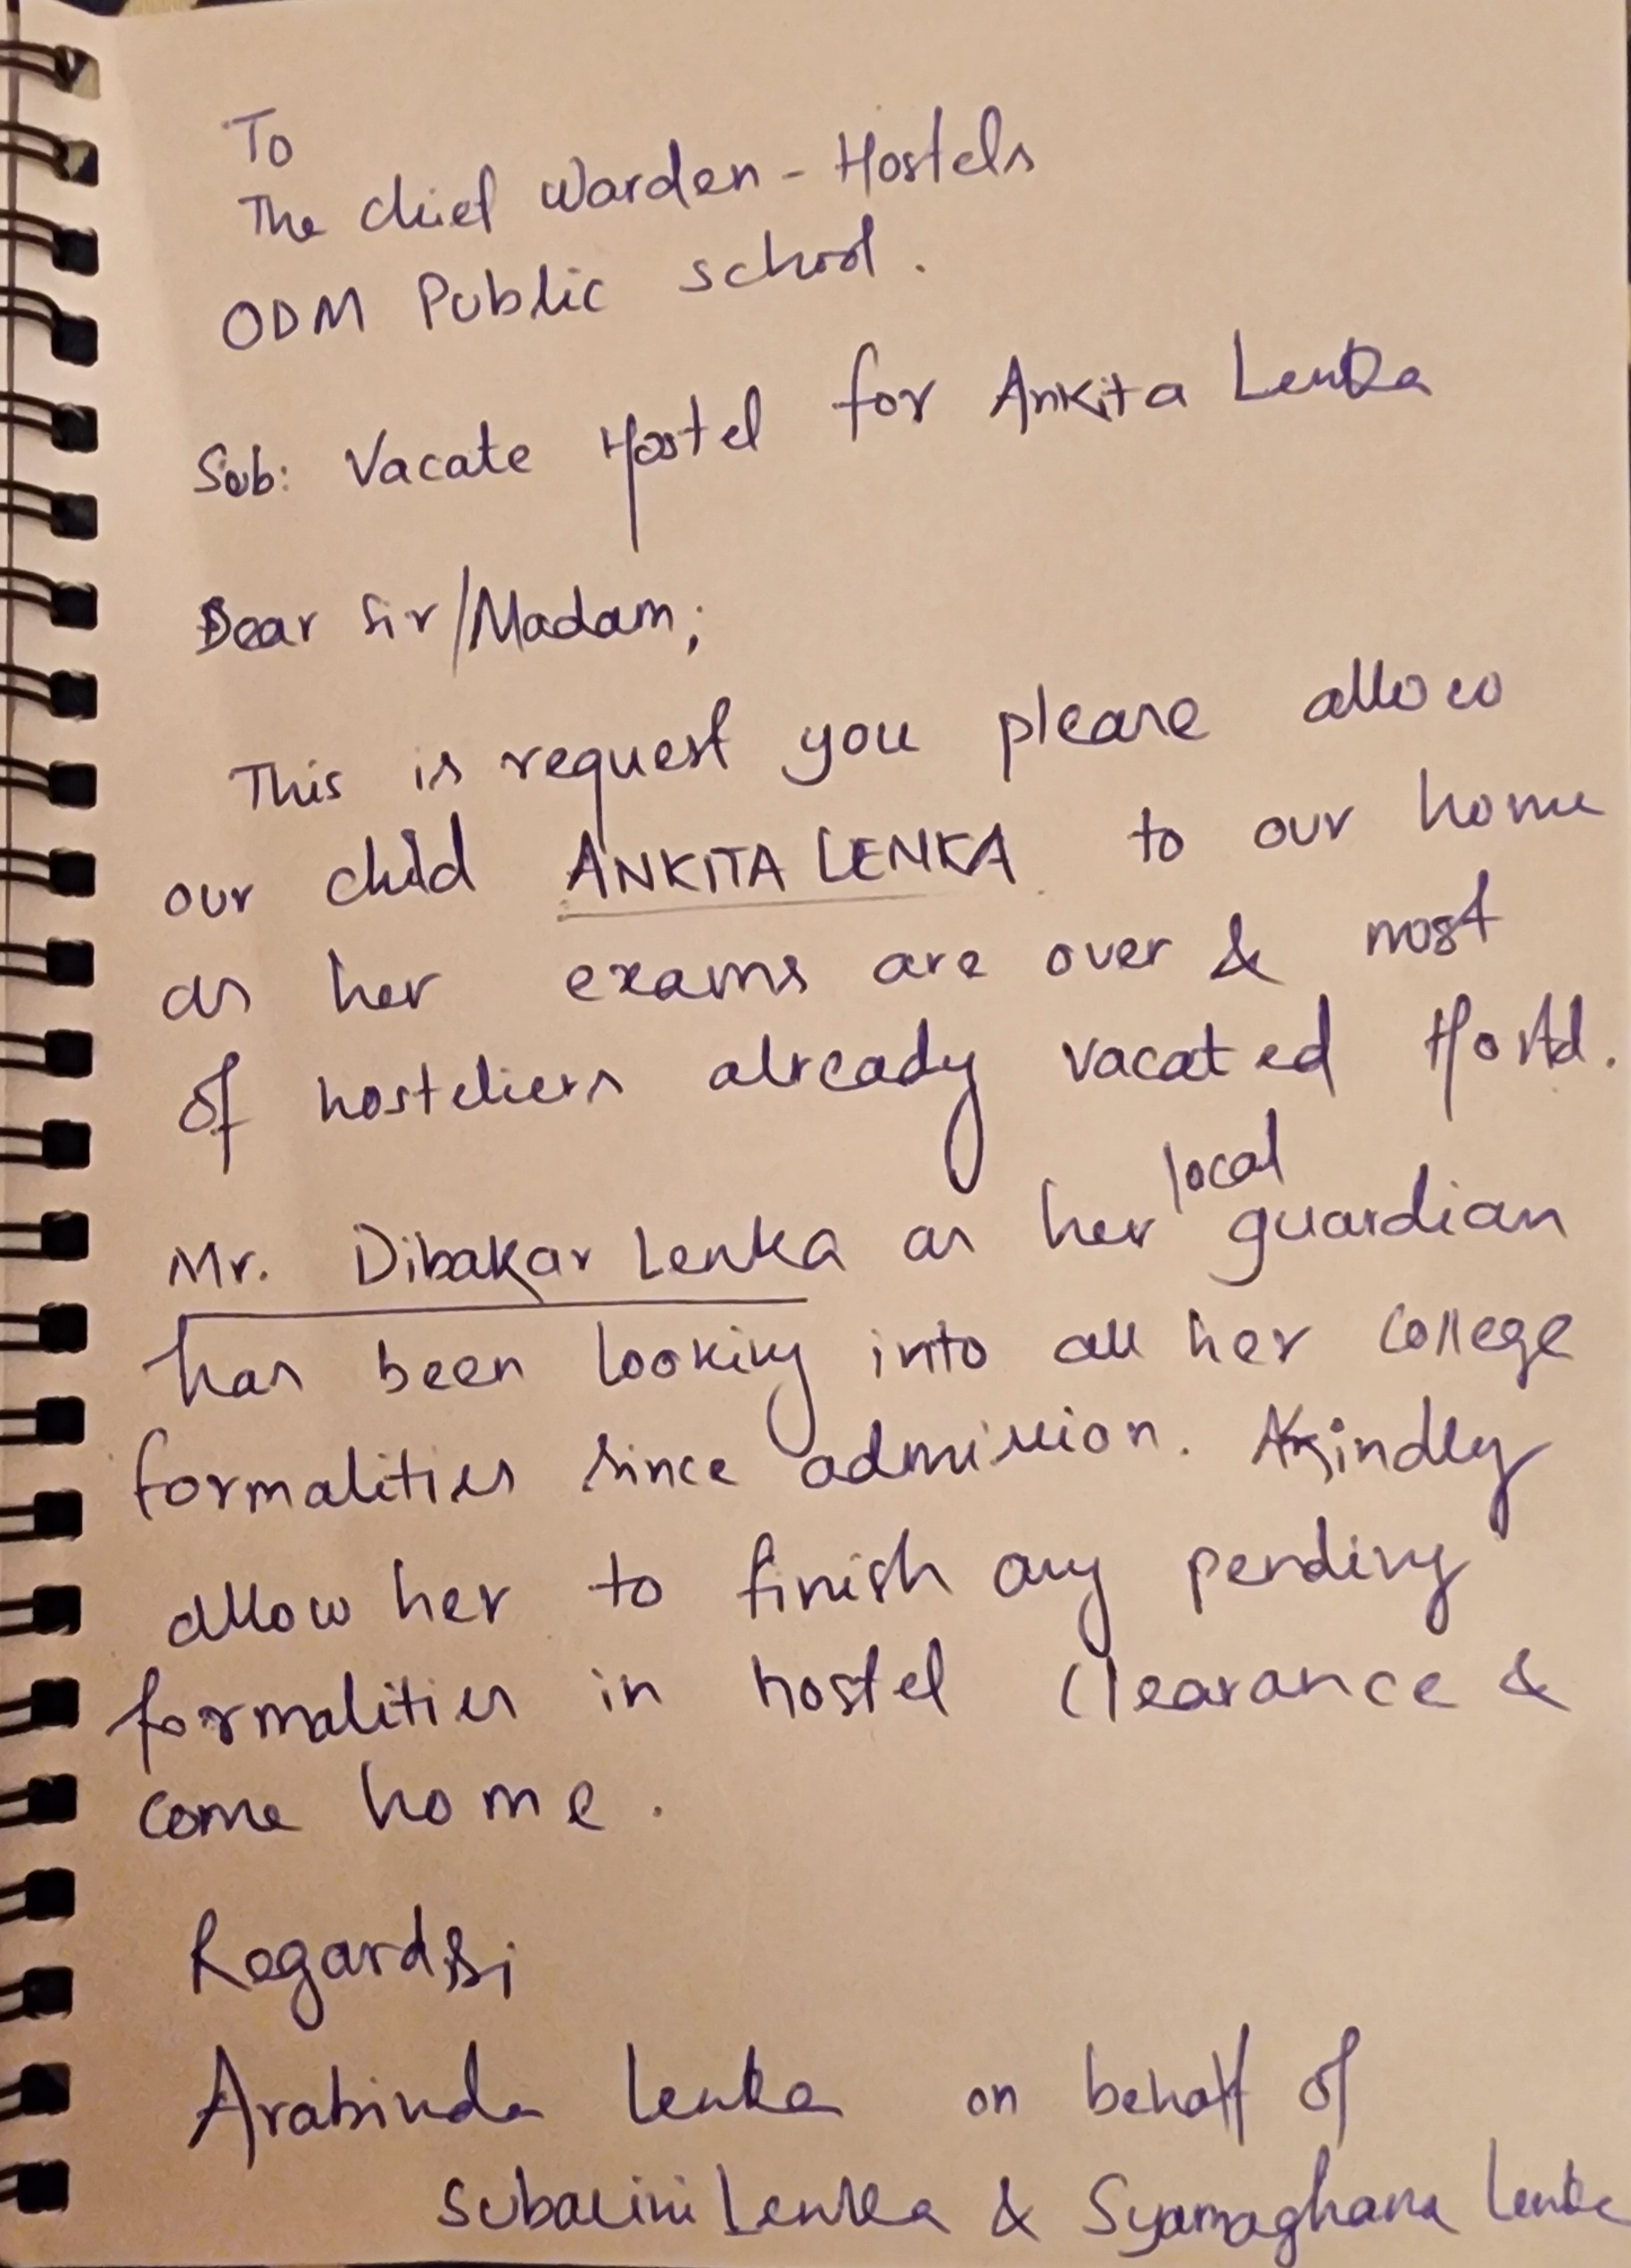 To
The Chief Warden - Hostels
ODM Public School.
Sub: Vacate Hostel for Ankita Lenka
Dear Sir/Madam;
This is request you please allow
our child ANKITA LENKA to our home
as her exams are over & most
of hosteliers already vacated Hostel.
Mr. Dibakar Lenka as her local guardian
has been looking into all her college
formalities since admission. Kindly
allow her to finish any pending
formalities in hostel clearance &
come home.
Regards;
Arabinda Lenka on behalf of
Subasini Lenka & Syamaghana Lenka